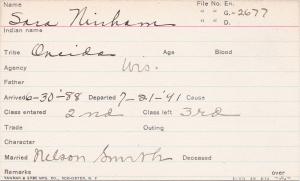 Name File No. En.
Sara Ninham " " G-2677
Indian name " " D.
Tribe Oneida Age Blood
Agency Wis.
Father
Arrived 6-30-'88 Departed 7-21-'91 Cause
Class entered 2nd Class left 3rd
Trade Outing
Character
Married Nelson Smith Deceased
Remarks over